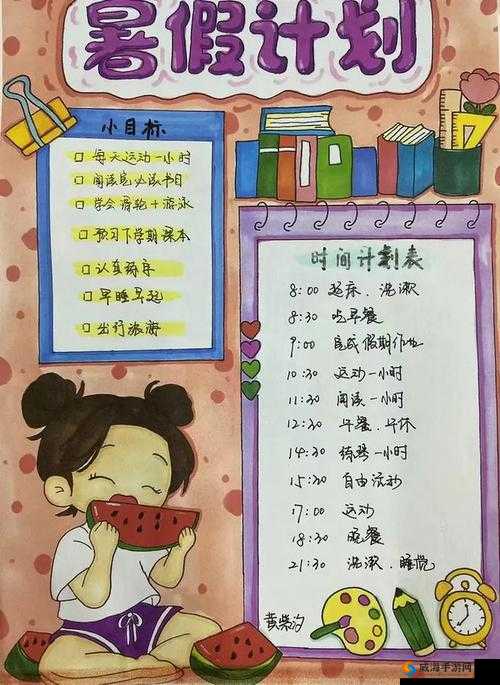 暑假计划
小目标
□ 每天运动一小时
□ 阅读完必读书目
□ 学会滑轮+游泳
□ 预习下学期课本
□ 认真练序
□ 早睡早起
□ 出行旅游
时间计划表
8:00 起床、洗漱
8:30 吃早餐
9:00 完成假期作业
10:30 运动一小时
11:30 阅读一小时
12:30 午餐、午休
14:30 练琴一小时
15:30 自由活动
17:00 运动
18:30 晚餐
21:30 洗漱、睡觉
黄紫汐
威海手游网